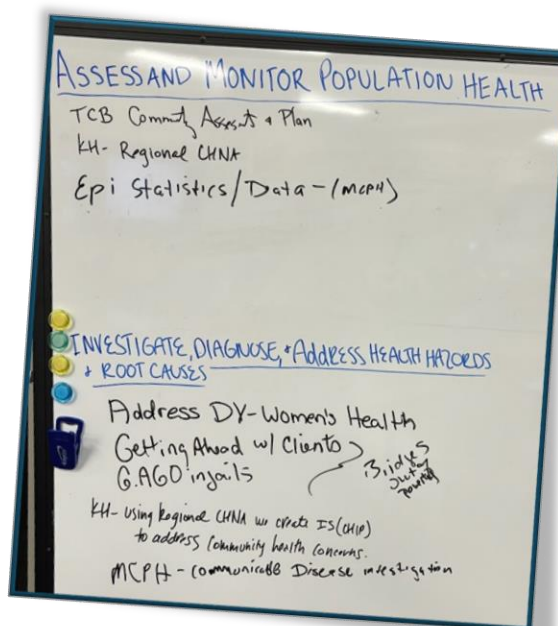 ASSESS AND MONITOR POPULATION HEALTH
TCB Community Assessmt + Plan
KH- Regional CHNA
Epi Statistics/Data-(MCPH)
INVESTIGATE, DIAGNOSE, + Address HEALTH HAZORDS
+ ROOT CAUSES
Address DV-Women's Health
Getting Ahead w/ Clients
G.AGO in jails
Bridges
out of
poverty
KH- using Regional CHNA we create IS(CHIP)
to address community health concerns.
MCPH - communicable Disease investigation